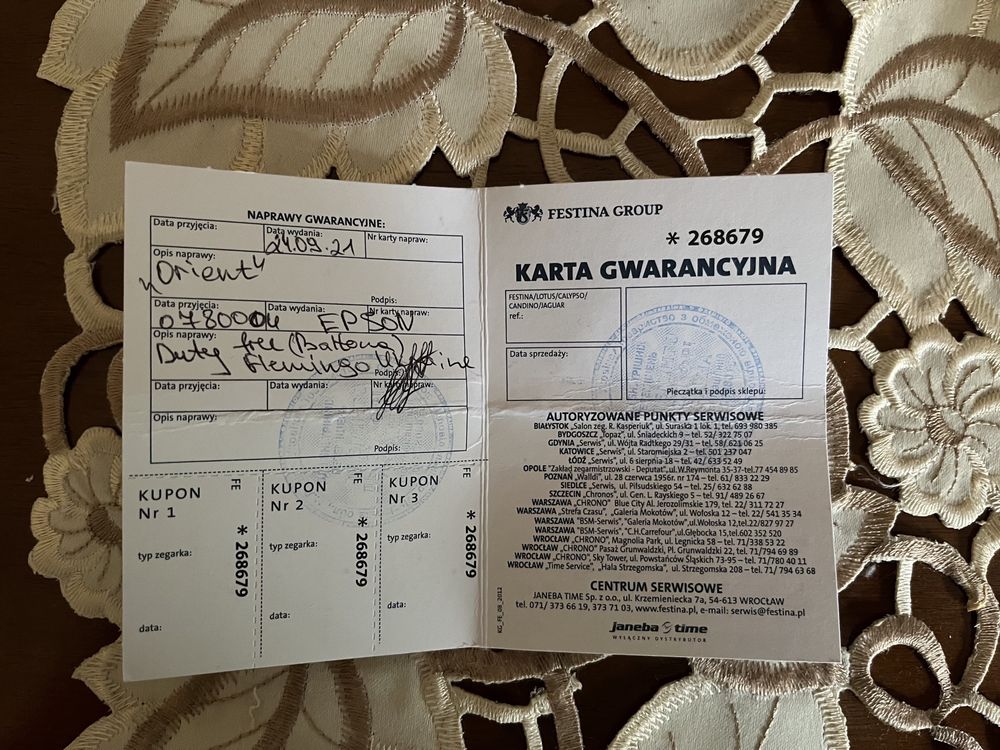 NAPRAWY GWARANCYJNE:
Data przyjęcia: Data wydania: Nr karty napraw:
24.09.21
Opis naprawy:
„Orient"
Podpis:
Data przyjęcia: Data wydania: Nr karty napraw:
0780004 EPSON
Opis naprawy:
Duty free
Flemingo Ukraine
Podpis:
Data przyjęcia: Data wydania: Nr karty napraw:
Opis naprawy:
Podpis:
KUPON Nr 1
typ zegarka:
data:
FE * 268679
KUPON Nr 2
typ zegarka:
data:
FE * 268679
KUPON Nr 3
typ zegarka:
data:
FE * 268679
FESTINA GROUP
* 268679
KARTA GWARANCYJNA
FESTINA/LOTUS/CALYPSO/
CANDINO/JAGUAR
ref.:
Data sprzedaży:
Pieczątka i podpis sklepu:
AUTORYZOWANE PUNKTY SERWISOWE
BIAŁYSTOK „Salon zeg. R. Kasperiuk", ul. Suraska 1 lok. 1, tel. 693 980 385
BYDGOSZCZ „Topaz", ul. Śniadeckich 9 – tel. 52/ 322 75 07
GDYNIA „Serwis", ul. Wójta Radtkego 29/31 – tel. 58/ 621 06 25
KATOWICE „Serwis", ul. Staromiejska 2 – tel. 501 237 047
ŁÓDŹ „Serwis", ul. 6 sierpnia 18 – tel. 42/ 633 52 49
OPOLE "Zakład zegarmistrzowski - Deputat",ul.W.Reymonta 35-37-tel.77 454 89 85
POZNAŃ "Walldi", ul. 28 czerwca 1956r. nr 174 – tel. 61/ 833 22 29
SIEDLCE „Serwis, ul. Piłsudskiego 54 – tel. 25/ 632 62 88
SZCZECIN „Chronos", ul. Gen. L. Rayskiego 5 – tel. 91/ 489 26 67
WARSZAWA „CHRONO" Blue City Al. Jerozolimskie 179, tel. 22/ 311 72 27
WARSZAWA "Strefa Czasu", „Galeria Mokotów", ul. Wołoska 12 – tel. 22/ 541 35 34
WARSZAWA "BSM-Serwis","Galeria Mokotów",ul.Wołoska 12,tel.22/827 97 27
WARSZAWA "BSM-Serwis",„C.H.Carrefour",ul.Głębocka 15,tel.602 352 520
WROCŁAW „CHRONO", Magnolia Park, ul. Legnicka 58 – tel. 71/338 53 22
WROCŁAW „CHRONO" Pasaż Grunwaldzki, Pl. Grunwaldzki 22, tel. 71/794 69 89
WROCŁAW „CHRONO", Sky Tower, ul. Powstańców Śląskich 73-95 – tel. 71/780 40 11
WROCŁAW „Time Service", „Hala Strzegomska", ul. Strzegomska 208 – tel. 71/ 794 63 68
CENTRUM SERWISOWE
JANEBA TIME Sp. z o.o., ul. Krzemieniecka 7a, 54-613 WROCŁAW
tel. 071/ 373 66 19, 373 71 03, www.festina.pl, e-mail: serwis@festina.pl
janeba time
WYŁĄCZNY DYSTRYBUTOR
KG_FE_08_2012